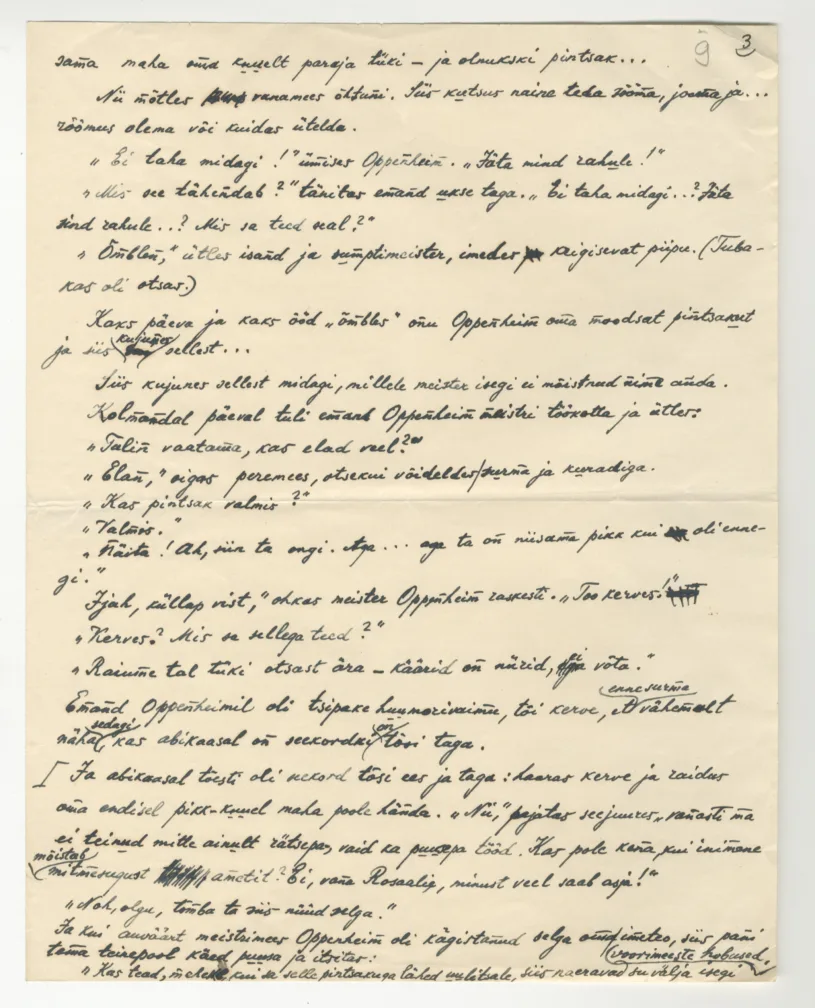 9 3
sama maha oma kuuelt paraja tüki – ja olnukski pintsak...
Nii mõtles vanamees õhtuni. Siis kutsus naine teda sööma, jooma ja...
rõõmus olema või kuidas ütelda.
„Ei taha midagi!" ümises Oppenheim. „Jäta mind rahule!"
„Mis see tähendab?" tänitas emand ukse taga. „Ei taha midagi..? Jäta
sind rahule..? Mis sa teed seal?"
„Õmblen," ütles isand ja sumptimeister, imedes kägisevat piipu. (Tuba-
kas oli otsas.)
Kaks päeva ja kaks ööd „õmbles" onu Oppenheim oma moodsat pintsakut
ja siis kujunes sellest...
Siis kujunes sellest midagi, millele meister isegi ei mõistnud nime anda.
Kolmandal päeval tuli emand Oppenheim meistri töökotta ja ütles:
„Tulin vaatama, kas elad veel?"
„Elan," oigas peremees, otsekui võideldes surma ja kuradiga.
„Kas pintsak valmis?"
„Valmis."
„Näita! Ah, siin ta ongi. Aga... aga ta on niisama pikk kui oli enne-
gi."
Jjah, küllap vist," ohkas meister Oppenheim raskesti. „Too kerves!"
„Kerves? Mis sa sellega teed?"
„Raiume tal tüki otsast ära – käärid on nürid, ei võta."
Emand Oppenheimil oli tsipake huumorivaimu, tõi kerve, et vähemalt enne surma
näha sedagi, kas abikaasal on seekordki on tõsi taga.
[ Ja abikaasal tõesti oli seekord tõsi ees ja taga: haaras kerve ja raidus
oma endisel pikk-kuuel maha poole hända. „Nii," pajatas seejuures, „vanasti ma
ei teinud mitte ainult rätsepa, vaid ka puusepa tööd. Kas pole kena, kui inimene
mõistab mitmesugust ametit? Ei, vana Rosaalie, minust veel saab asja!"
„Noh, olgu, tõmba ta siis nüüd selga."
Ja kui auväärt meistrimees Oppenheim oli kägistanud selga omaimeteo, siis pani
tema teinepool käed puusa ja itsitas:
„Kas tead, mehe kui sa selle pintsakuga lähed uulitsale, siis naeravad su välja isegi voorimeeste hobused.